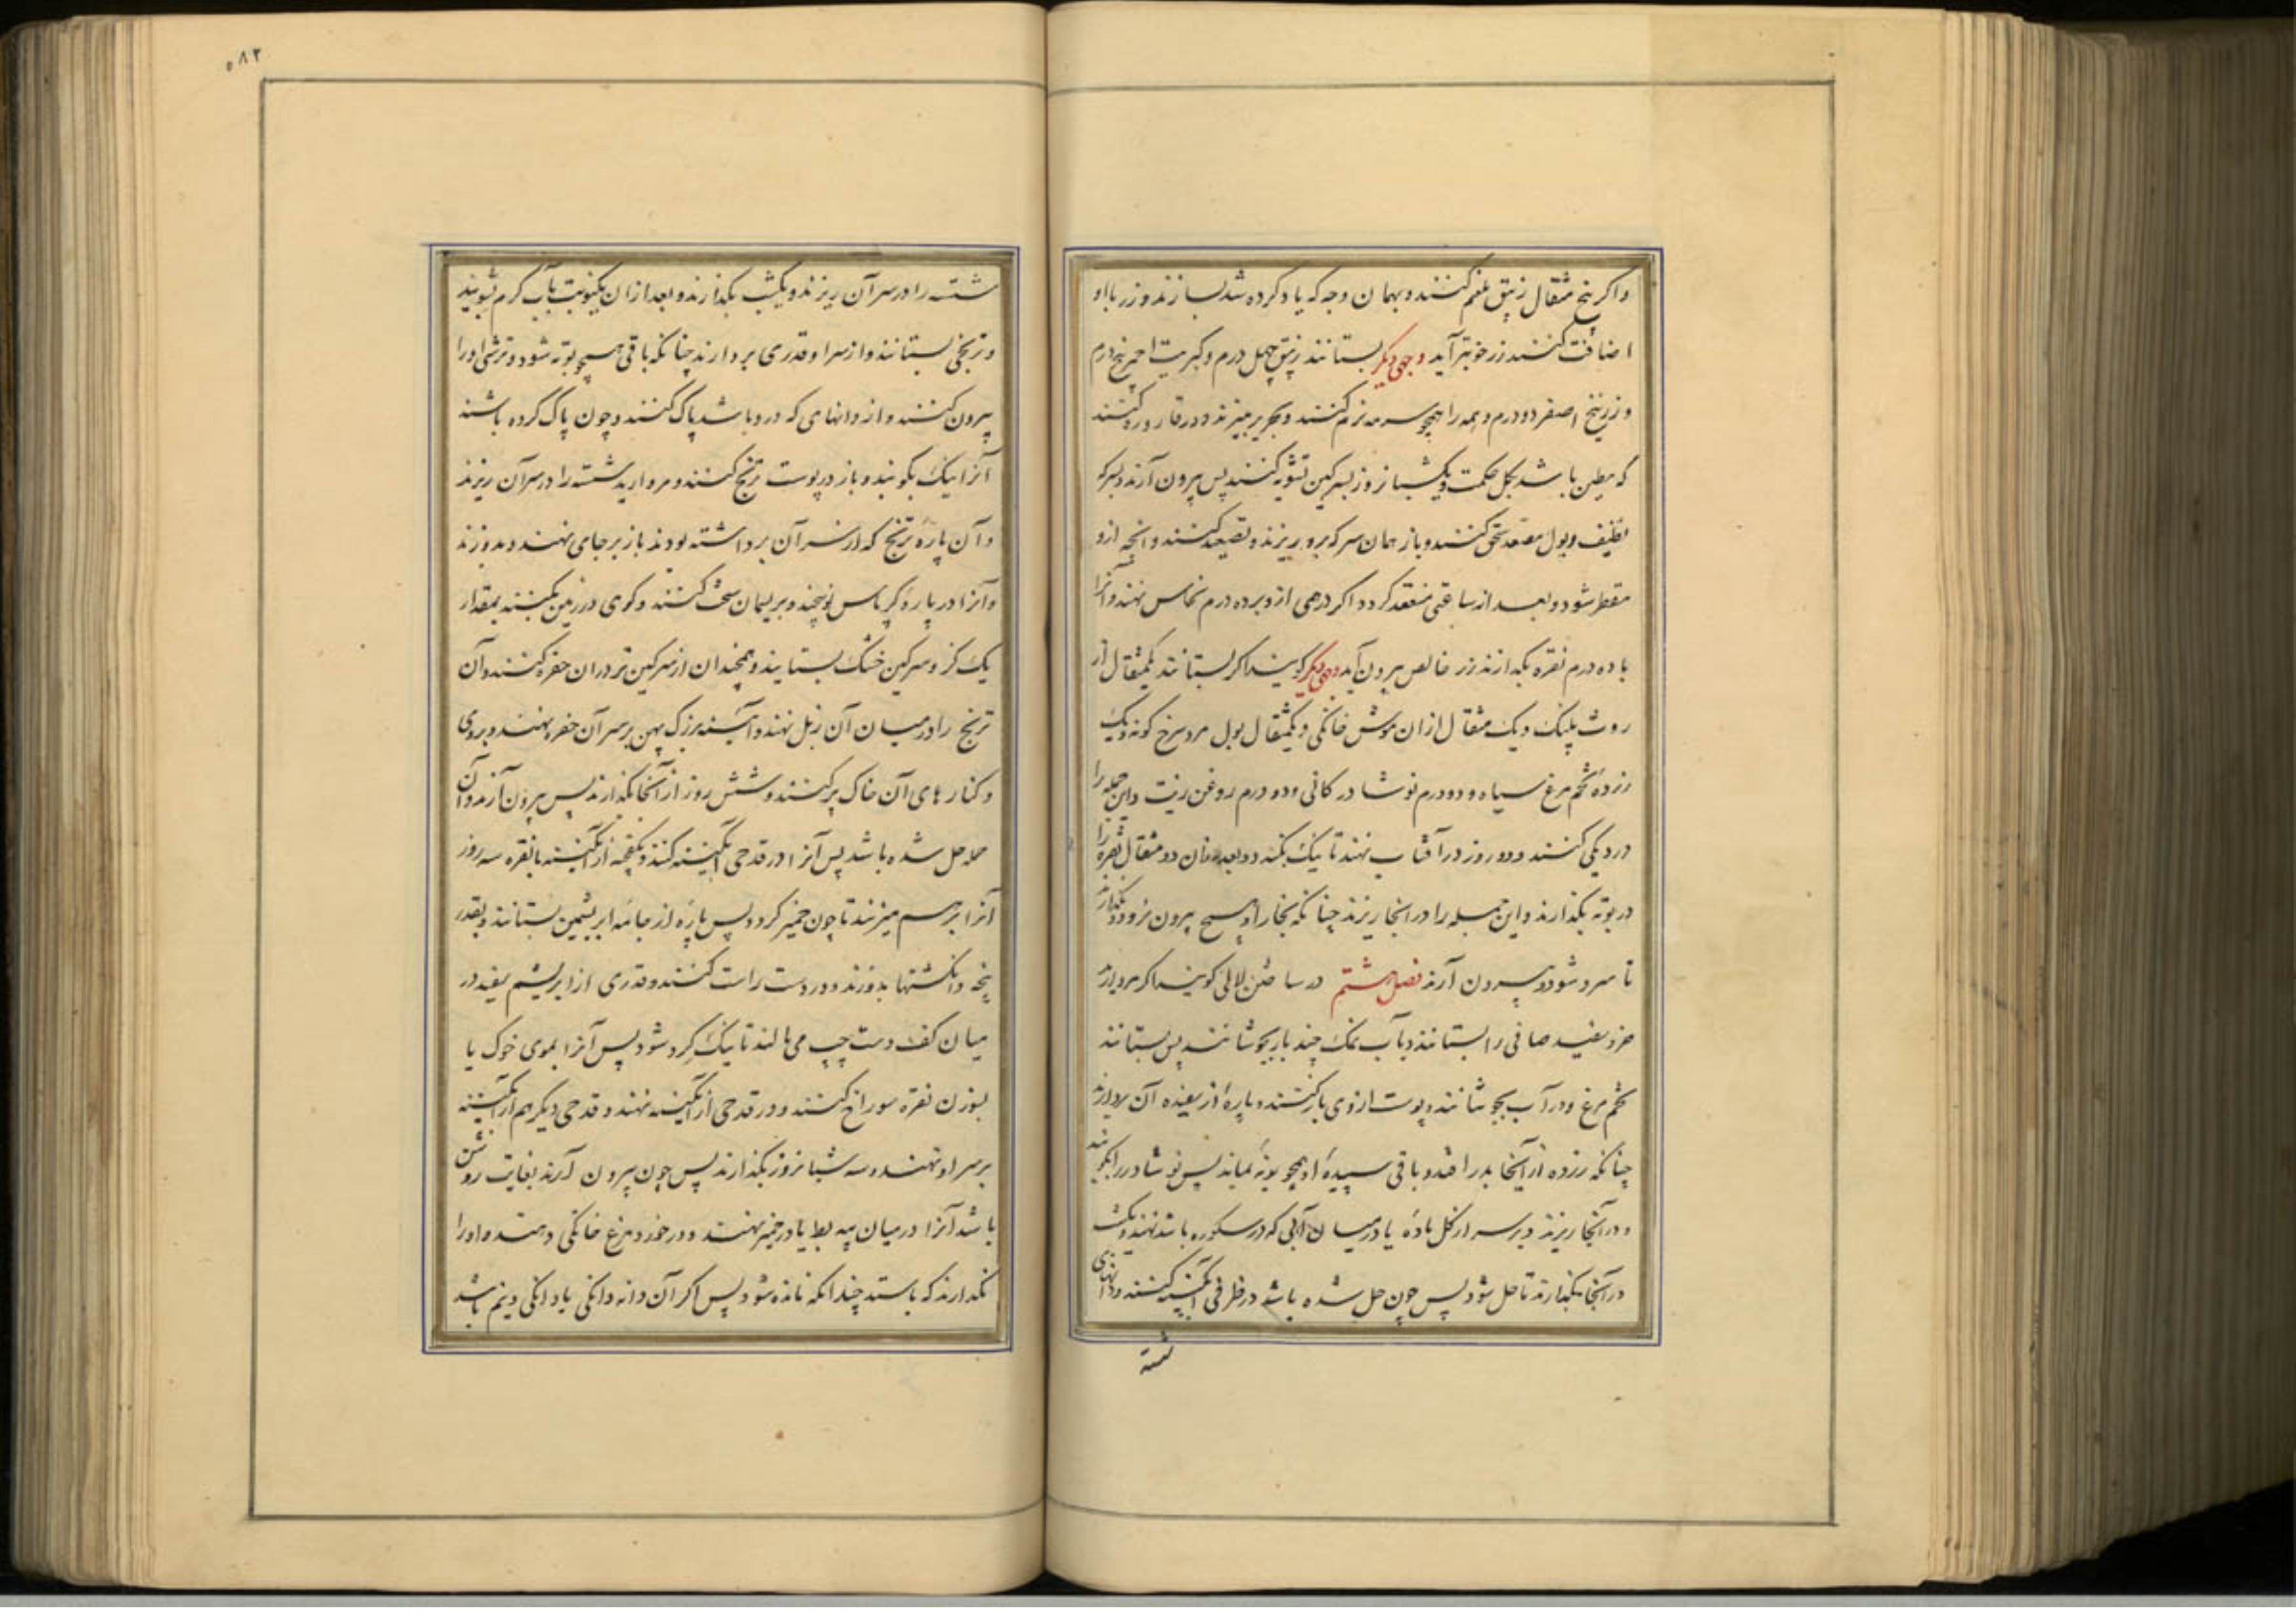 واکر پنج مثقال زیبق ملغم کنند و بهمان وجه که یاد کرده شد بسازند و زر با او
اضافت کنند زر خوبتر آید وجهی دیکر بستانند زیبق چهل درم و کبریت احمر پنج درم
و زرنیخ اصفر دو درم و همه را همچو سرمه نرم کنند و بحریر ببیزند و در قاروره کنند
که مطین باشد بکل حکمت و یکشبانروز بسرکین تشویه کنند پس بیرون آرند و بسرکه
ثقیف و بول مصعد سحق کنند و باز همان سرکه برو ریزند و تصعید کنند و آنچه ازو
مقطر شود و بعد از ساعتی منعقد کردد اکر درمی ازو بر ده درم نحاس نهند و آنرا
با ده درم نقره بکدازند زر خالص بیرون آید وجهی دیکر کویند اکر بستانند یکمثقال از
روث پلنک و یک مثقال از ان موش خانکی و یکمثقال بول مرد سرخ کونه و یک
زردهٔ تخم مرغ سیاه و دو درم نوشادر کانی و ده درم روغن زیت و این جمله را
در دیکی کنند و دو روز در آفتاب نهند تا نیک بکندد و بعد از ان دو مثقال نقره را
در بوته بکدازند و این جمله را در آنجا ریزند چنانکه بخار او هیچ بیرون نرود و بکذارند
تا سرد شود و بیرون آرند فصل هشتم در ساختن لالی کویند اکر مروارید
خرد سفید صافی را بستانند و بآب نمک چند بار بجوشانند پس بستانند
تخم مرغ و در آب بجوشانند و پوست از وی باز کنند و پارهٔ از سفیده آن بردارند
چنانکه زرده از آنجا بدر افتد و باقی سپیدهٔ او همچو بوتهٔ بماند پس نوشادر را بکوبند
و در آنجا ریزند و بر سر از کل بادهٔ یا در میان آبی که در سکوره باشد نهند و یکشب
در آنجا بکذارند تا حل شود پس چون حل شده باشد در ظرفی آبکینه کنند و دانهای
شسته
۵۸۲
شسته را در سر آن ریزند و یکشب بکذارند و بعد از ان یکنوبت بآب کرم بشویند
و ترنجی بستانند و از سر او قدری بردارند چنانکه باقی همچو بوته شود و ترشی او را
بیرون کنند و از دانهای که درو باشد پاک کنند و چون پاک کرده باشند
آنرا نیک بکوبند و باز در پوست ترنج کنند و مروارید شسته را در سر آن ریزند
و آن پارهٔ ترنج که از سر آن برداشته بودند باز بر جای نهند و بدوزند
و آنرا در پارهٔ کرباس نو پیچند و بریسمان سخت کنند و کوی در زمین بکنند بمقدار
یک کز و سرکین خشک بستانند و همچندان از سرکین تر در ان حفره کنند و آن
ترنج را در میان آن زبل نهند و آینه بزرک پهن بر سر آن حفره نهند و بر روی
و کنارهای آن خاک پر کنند و شش روز از آنجا بکذارند پس بیرون آرند و آن
جمله حل شده باشد پس آنرا در قدحی آبکینه کنند و بکفچه از آبکینه یا نقره سه روز
آنرا بر هم میزنند تا چون خمیر کردد پس پارهٔ از جامهٔ ابریشمین بستانند و بقدر
پنجه و انکشتها بدوزند و در دست راست کنند و قدری از ابریشم سفید در
میان کف دست چپ می مالند تا نیک کرد شود پس آنرا بموی خوک یا
بسوزن نقره سوراخ کنند و در قدحی از آبکینه نهند و قدحی دیکر هم از آبکینه
بر سر او نهند و سه شبانروز بکذارند پس چون بیرون آرند بغایت روشن
باشد آنرا در میان پیه بط یا در خمیر نهند و در خورد مرغ خانکی دهند و او را
نکدارند که باستد چندانکه نانده شود پس اکر آن دانه دانکی یا دانکی و نیم باشد